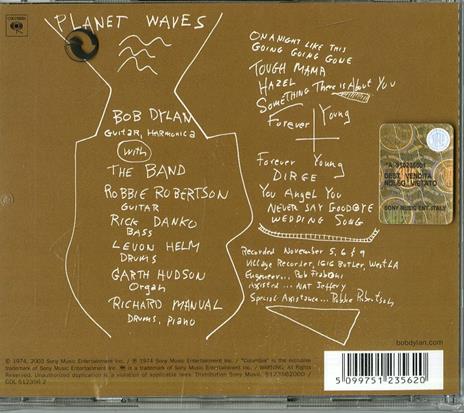 PLANET WAVES
BOB DYLAN
GUITAR, HARMONICA
WITH
THE BAND
ROBBIE ROBERTSON
GUITAR
RICK DANKO
BASS
LEVON HELM
DRUMS
GARTH HUDSON
ORGAN
RICHARD MANUAL
DRUMS, PIANO
ON A NIGHT LIKE THIS
GOING GOING GONE
TOUGH MAMA
HAZEL
SOMETHING There is About You
Forever Young
Forever Young
DIRGE
You Angel You
NEVER SAY GOODBYE
WEDDING SONG
Recorded November 5, 6 & 9
Village Recorder, 1616 Butler, West LA
Engineer... Rob Fraboni
Assisted... NAT Jeffery
Special Assistance... Robbie Robertson
SONY MUSIC ENT. ITALY
bobdylan.com
© 1974, 2003 Sony Music Entertainment Inc. / ℗ 1974 Sony Music Entertainment Inc. / "Columbia" is the exclusive
trademark of Sony Music Entertainment Inc. is a trademark of Sony Music Entertainment Inc. / WARNING: All Rights
Reserved. Unauthorized duplication is a violation of applicable laws. Distribution Sony Music. 5123562000 /
COL 512356 2
5 099751 235620